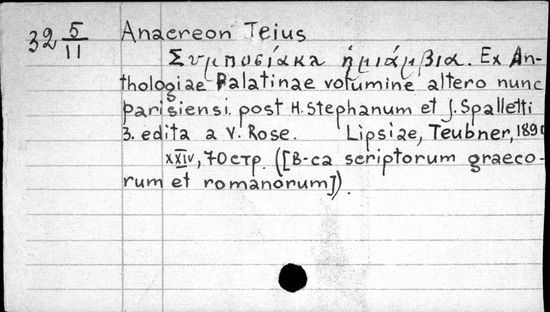 32 5/11 Anacreon Teius
Συμποσιακα ἡμιάμβια. Ex An-
thologiae Palatinae volumine altero nunc
parisiensi. post H. Stephanum et J. Spalletti
3. edita a V. Rose. Lipsiae, Teubner, 1890
XXIV, 70 стр. ([B-ca scriptorum graeco-
rum et romanorum]).